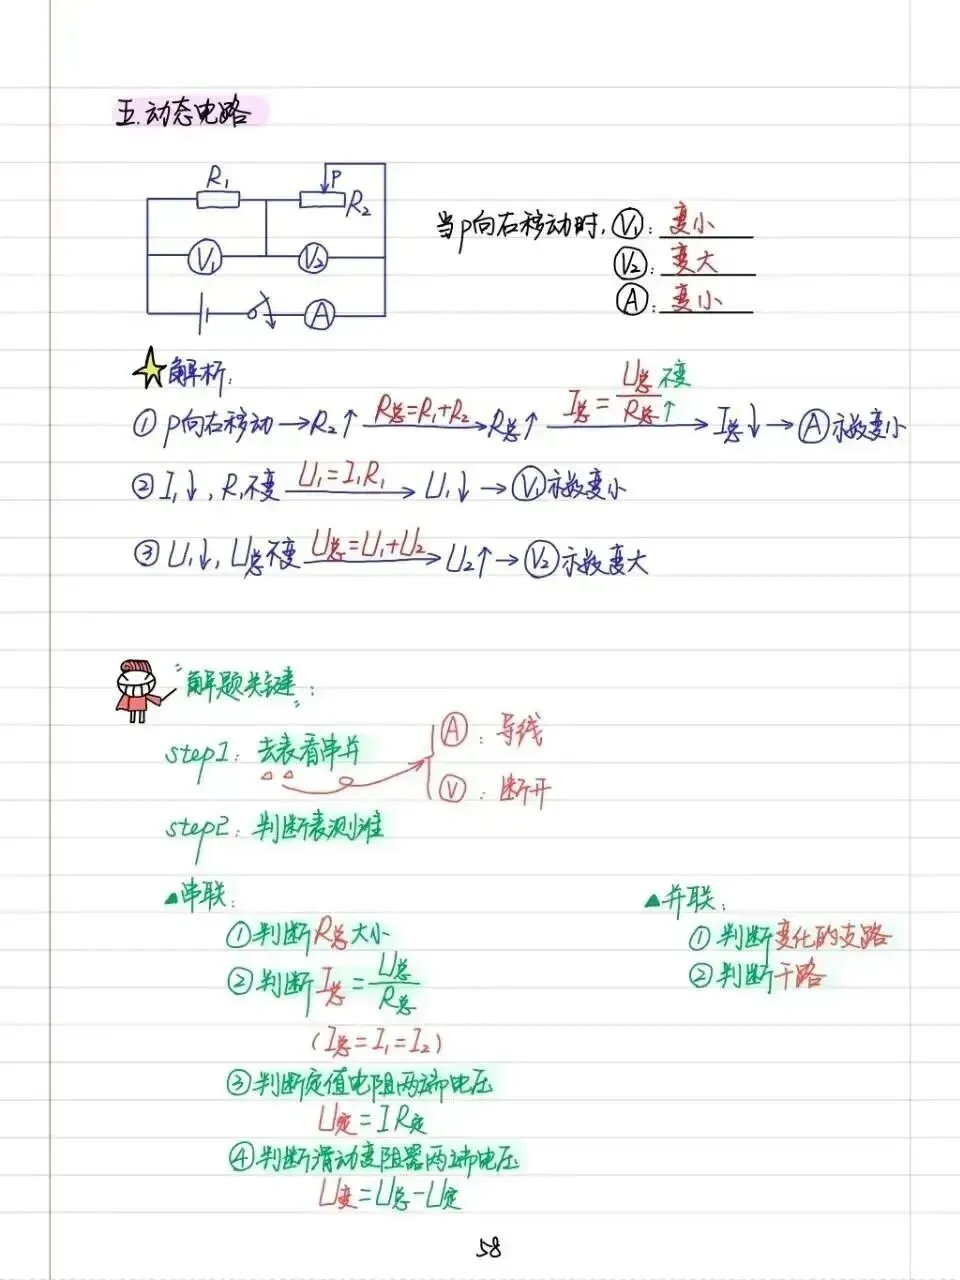 五.动态电路
R₁
P
R₂
V₁
V₂
A
当P向右移动时,V₁:变小
V₂:变大
A:变小
解析:
①P向右移动→R₂↑ R总=R₁+R₂→R总↑ I总=U总不变/R总↑→I总↓→A示数变小
②I₁↓,R₁不变 U₁=I₁R₁→U₁↓→V₁示数变小
③U₁↓,U总不变 U总=U₁+U₂→U₂↑→V₂示数变大
"解题关键":
step1:去表看串并
A:导线
V:断开
step2:判断表测谁
▲串联:
①判断R总大小
②判断I总=U总/R总
(I总=I₁=I₂)
③判断定值电阻两端电压
U定=IR定
④判断滑动变阻器两端电压
U变=U总-U定
▲并联:
①判断变化的支路
②判断干路
58